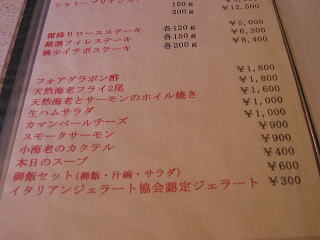 シャトーブリアンステーキ 150g
200g ¥12,500
霜降りロースステーキ 各120g ¥5,000
厳選フィレステーキ 各150g ¥6,300
稀少イチボステーキ 各200g ¥8,400
フォアグラポン酢 ¥1,800
天然海老フライ2尾 ¥1,800
天然海老とサーモンのホイル焼き ¥1,600
生ハムサラダ ¥1,000
カマンベールチーズ ¥1,000
スモークサーモン ¥900
小海老のカクテル ¥900
本日のスープ ¥400
御飯セット(御飯・汁碗・サラダ) ¥600
イタリアンジェラート協会認定ジェラート ¥300